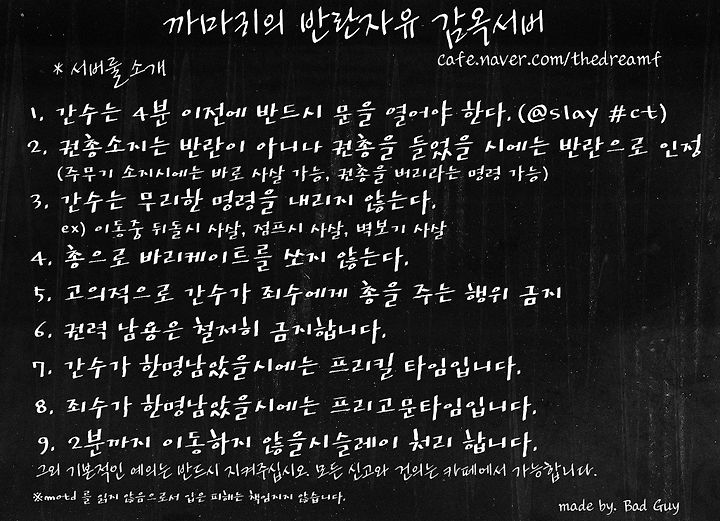 까마귀의 반란자유 감옥서버
cafe.naver.com/thedreamf
* 서버룰 소개
1. 간수는 4분 이전에 반드시 문을 열어야 한다.(@slay #ct)
2. 권총소지는 반란이 아니나 권총을 들었을 시에는 반란으로 인정
(주무기 소지시에는 바로 사살 가능, 권총을 버리라는 명령 가능)
3. 간수는 무리한 명령을 내리지 않는다.
ex) 이동중 뒤돌시 사살, 점프시 사살, 벽보기 사살
4. 총으로 바리케이트를 쏘지 않는다.
5. 고의적으로 간수가 죄수에게 총을 주는 행위 금지
6. 권력 남용은 철저히 금지합니다.
7. 간수가 한명남았을시에는 프리킬 타임입니다.
8. 죄수가 한명남았을시에는 프리고문타임입니다.
9. 2분까지 이동하지 않을시슬레이 처리 합니다.
그외 기본적인 예의는 반드시 지켜주십시오. 모든 신고와 건의는 카페에서 가능합니다.
※motd 를 읽지 않음으로서 입은 피해는 책임지지 않습니다.
made by. Bad Guy